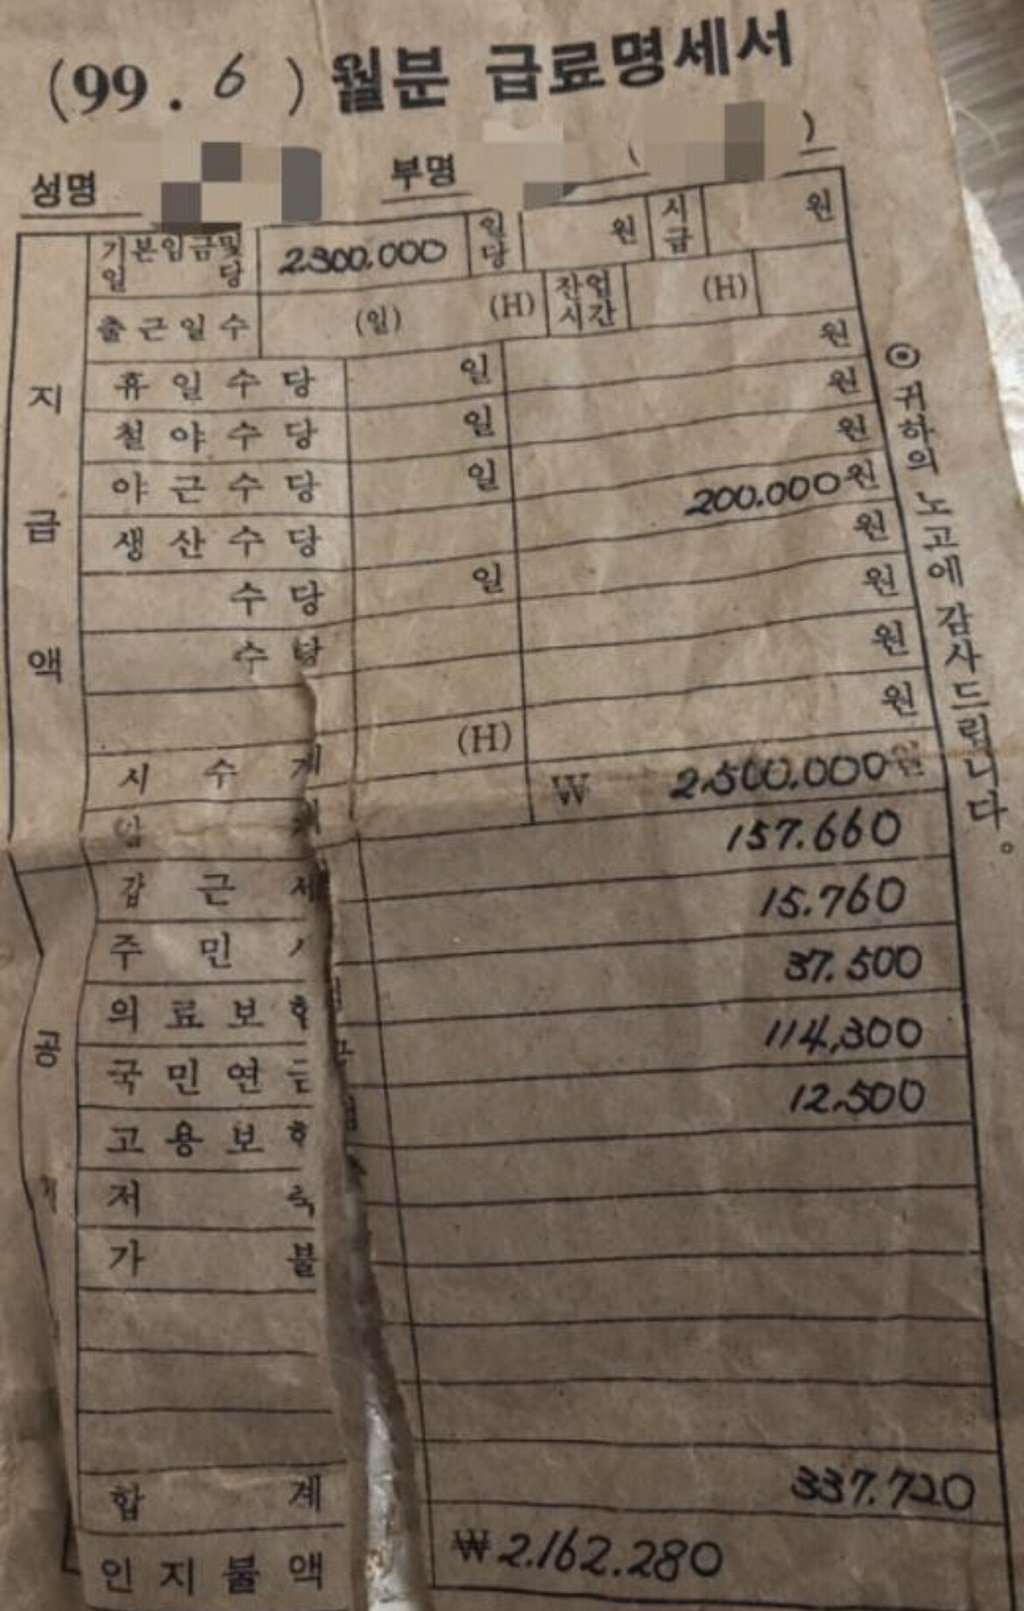 (99. 6 ) 월분 급료명세서
성명 부명 ( )
기본임금및 일당 2.300.000 일당 원 시급 원
출근일수 (일) (H) 잔업시간 (H)
원
휴일수당 일 원
철야수당 일 원
야근수당 일 200.000원
생산수당 원
수당 일 원
수당 원
원
시수계 (H)
₩ 2.500.000원
갑근세 157.660
주민 15.760
의료보험 37.500
국민연금 114,300
고용보험 12.500
저축
가불
합계 337.720
인지불액 ₩2.162.280
지급액
공
⊙귀하의 노고에 감사드립니다.